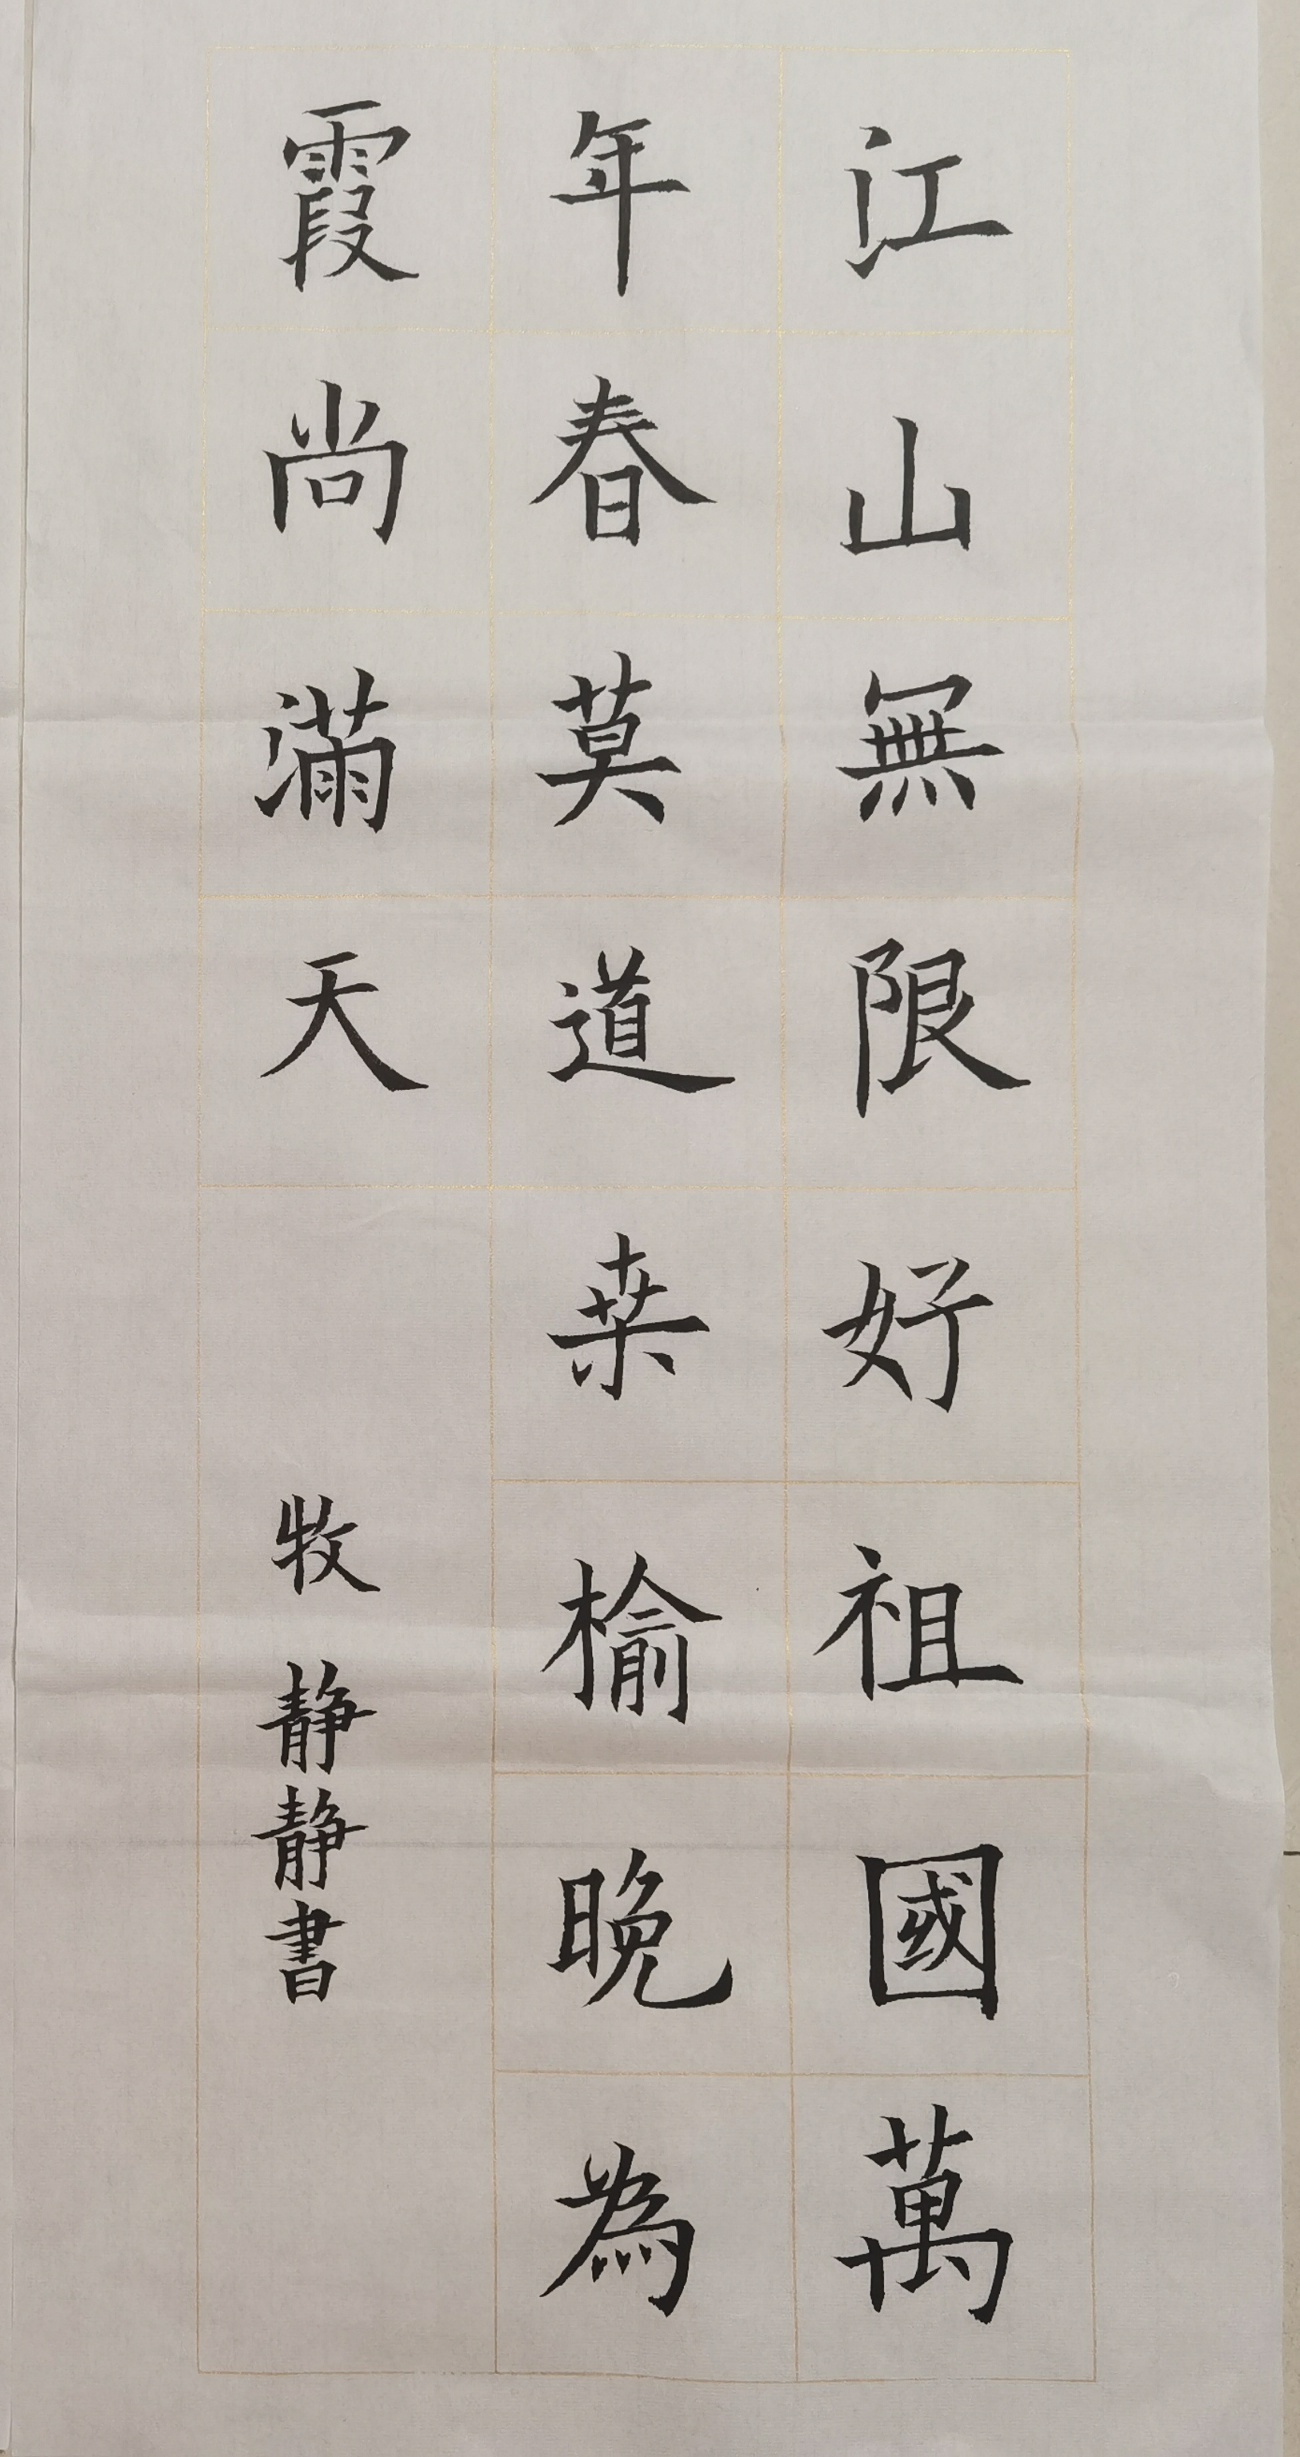 江山無限好祖國萬
年春莫道桒榆晚為
霞尚滿天
牧靜靜書